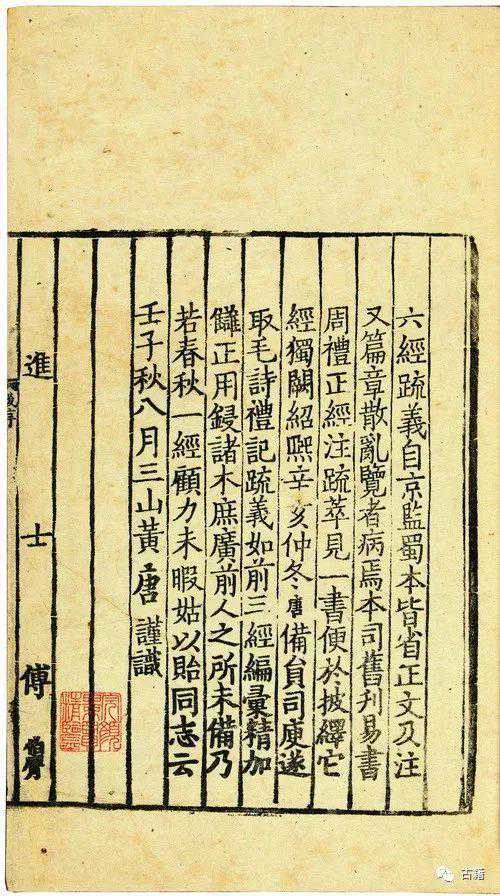 六經疏義自京監蜀本皆省正文及注
又篇章散亂覽者病焉本司舊刊易書
周禮正經注疏萃見一書便於披繹它
經獨闕紹熙辛亥仲冬唐備員司庾遂
取毛詩禮記疏義如前三經編彙精加
讎正用鋟諸木庶廣前人之所未備乃
若春秋一經顧力未暇姑以貽同志云
壬子秋八月三山黃唐謹識
進士傅伯膺
古籍